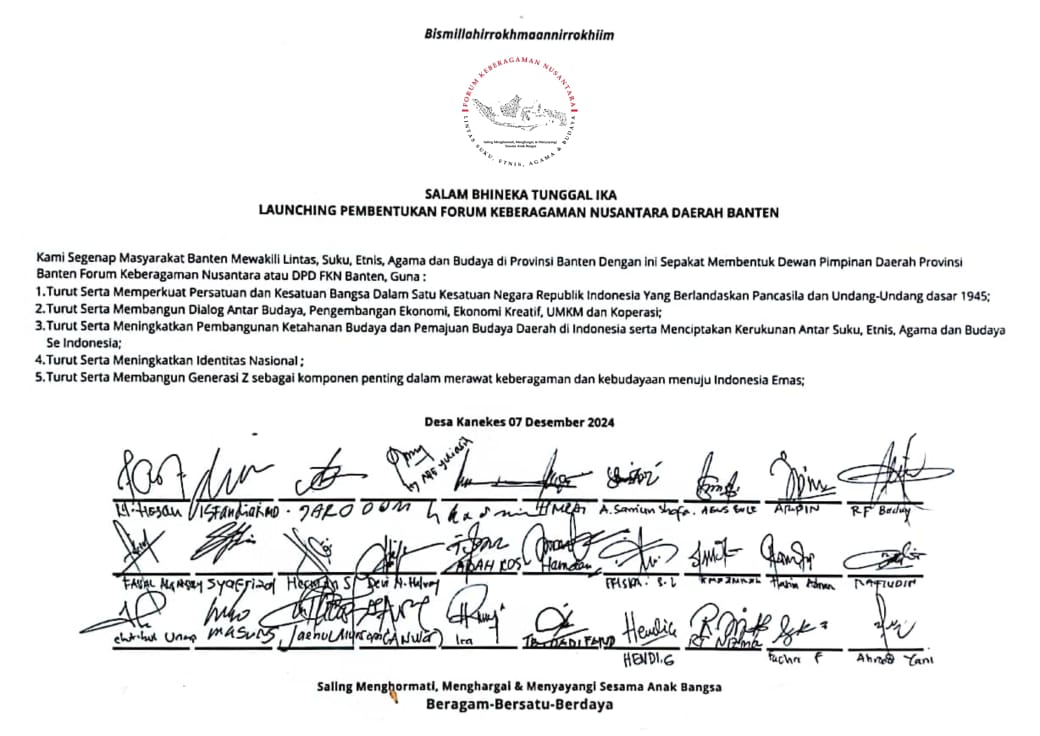 Bismillahirrokhmaannirrokhiim
FORUM KEBERAGAMAN NUSANTARA
LINTAS SUKU, ETNIS, AGAMA & BUDAYA
Saling Menghormati, Menghargai & Menyayangi
Sesama Anak Bangsa
SALAM BHINEKA TUNGGAL IKA
LAUNCHING PEMBENTUKAN FORUM KEBERAGAMAN NUSANTARA DAERAH BANTEN
Kami Segenap Masyarakat Banten Mewakili Lintas, Suku, Etnis, Agama dan Budaya di Provinsi Banten Dengan ini Sepakat Membentuk Dewan Pimpinan Daerah Provinsi
Banten Forum Keberagaman Nusantara atau DPD FKN Banten, Guna :
1.Turut Serta Memperkuat Persatuan dan Kesatuan Bangsa Dalam Satu Kesatuan Negara Republik Indonesia Yang Berlandaskan Pancasila dan Undang-Undang dasar 1945;
2.Turut Serta Membangun Dialog Antar Budaya, Pengembangan Ekonomi, Ekonomi Kreatif, UMKM dan Koperasi;
3.Turut Serta Meningkatkan Pembangunan Ketahanan Budaya dan Pemajuan Budaya Daerah di Indonesia serta Menciptakan Kerukunan Antar Suku, Etnis, Agama dan Budaya
Se Indonesia;
4.Turut Serta Meningkatkan Identitas Nasional ;
5.Turut Serta Membangun Generasi Z sebagai komponen penting dalam merawat keberagaman dan kebudayaan menuju Indonesia Emas;
Desa Kanekes 07 Desember 2024
ARIPIN RF Baduy
Syafrizal Herman S Hamdan
MASUNS Ira Hendi
HENDI.G Fachri F Ahmad Yani
Saling Menghormati, Menghargai & Menyayangi Sesama Anak Bangsa
Beragam-Bersatu-Berdaya